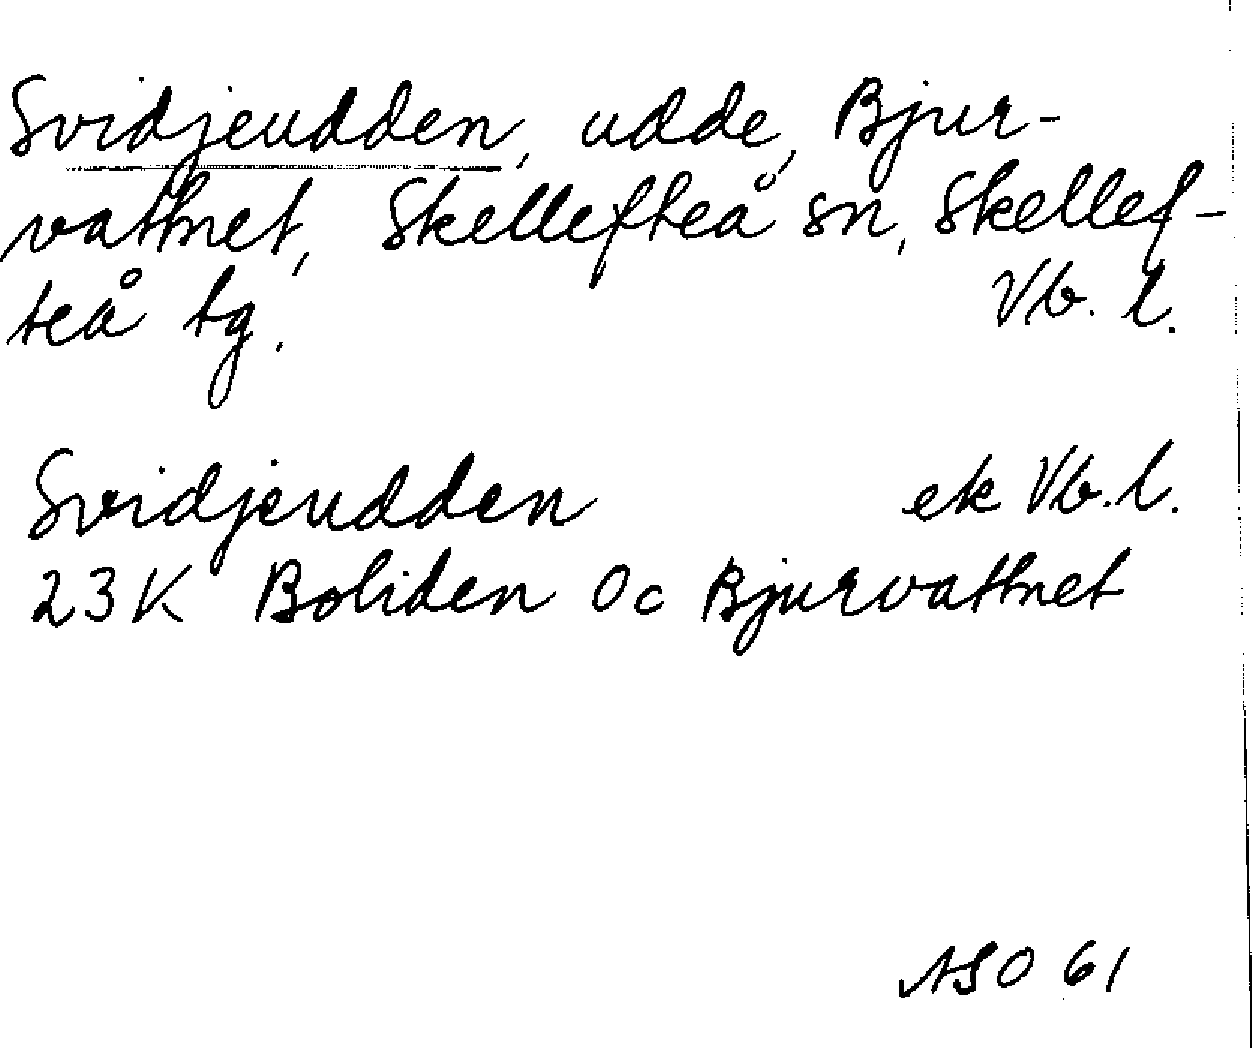 Svidjeudden, udde, Bjur-
vattnet, Skellefteå sn, Skellef-
teå tg. Vb. l.
Svidjeudden ek Vb. l.
23K Boliden 0c Bjurvattnet
ASO 61